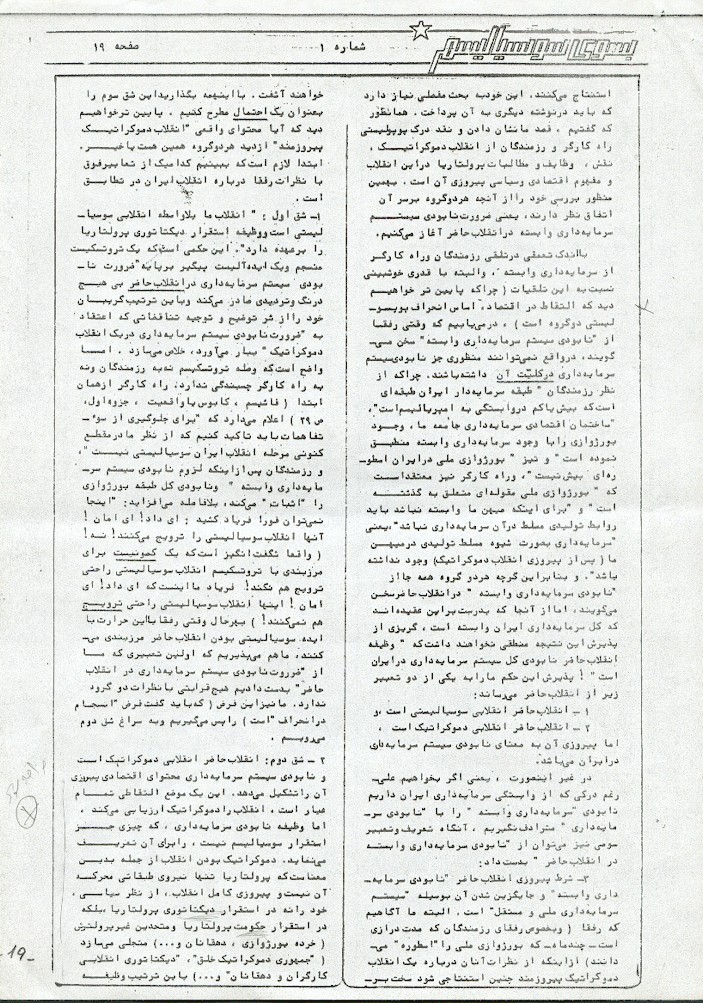 بسوی سوسیالیسم
شماره ۱
صفحه ۱۹
استنتاج می‌کنند. این خود به بحث مفصلی نیاز دارد
که باید در نوشته دیگری به آن پرداخت. همانطور
که گفتیم ، قصد ما نشان دادن و نقد درک پوپولیستی
راه کارگر و رزمندگان از انقلاب دموکراتیک ،
نقش ، وظایف و مطالبات پرولتاریا در این انقلاب
و مفهوم اقتصادی و سیاسی پیروزی آن است . بهمین
منظور بررسی خود را از آنچه هر دو گروه بر سر آن
اتفاق نظر دارند، یعنی ضرورت نابودی سیستم
سرمایه‌داری وابسته در انقلاب حاضر آغاز می‌کنیم.
با اندک تعمقی در تلقی رزمندگان و راه کارگر
از سرمایه‌داری وابسته ، والبته با قدری خوشبینی
نسبت به این تلقیات ( چرا که پایین تر خواهیم
دید که التقاط در اقتصاد، اساس انحراف پوپو-
لیستی دو گروه است ) ، در می‌یابیم که وقتی رفقا
از "نابودی سیستم سرمایه‌داری وابسته" سخن می-
گویند، در واقع نمی‌توانند منظوری جز نابودی سیستم
سرمایه‌داری در کلیت آن داشته باشند. چرا که از
نظر رزمندگان " طبقه سرمایه‌دار ایران طبقه‌ای
است که بیش یا کم در وابستگی به امپریالیسم است"،
"ساختمان اقتصادی سرمایه‌داری جامعه ما، وجود
بورژوازی را با وجود سرمایه‌داری وابسته منطبق
نموده است " و نیز " بورژوازی ملی در ایران اسطو-
ره‌ای بیش نیست"، و راه کارگر نیز معتقد است
که " بورژوازی ملی مقوله‌ای متعلق به گذشته
است " و "برای اینکه میهن ما وابسته نباشد باید
روابط تولیدی مسلط در آن سرمایه‌داری نباشد"، یعنی
"سرمایه‌داری بصورت شیوه مسلط تولیدی در میهن
ما ( پس از پیروزی انقلاب دموکراتیک) وجود نداشته
باشد". و بنابراین گرچه هر دو گروه همه جا از
"نابودی سرمایه‌داری وابسته " در انقلاب حاضر سخن
می‌گویند، اما از آنجا که بدرست بر این عقیده‌اند
که کل سرمایه‌داری ایران وابسته است ، گریزی از
پذیرش این نتیجه منطقی نخواهند داشت که " وظیفه
انقلاب حاضر نابودی کل سیستم سرمایه‌داری در ایران
است " ! پذیرش این حکم ما را به یکی از دو تعبیر
زیر از انقلاب حاضر می‌رساند:
۱ - انقلاب حاضر انقلابی سوسیالیستی است ، و
۲ - انقلاب حاضر انقلابی دموکراتیک است ،
اما پیروزی آن به معنای نابودی سیستم سرمایه‌داری
در ایران می‌باشد.
در غیر اینصورت ، یعنی اگر بخواهیم علی-
رغم درکی که از وابستگی سرمایه‌داری ایران داریم
نابودی "سرمایه‌داری وابسته " را با "نابودی سر-
مایه‌داری " مترادف نگیریم ، آنگاه تعریف و تعبیر
سومی نیز می‌توان از "نابودی سرمایه‌داری وابسته
در انقلاب حاضر " بدست داد:
۳- شرط پیروزی انقلاب حاضر "نابودی سرمایه-
داری وابسته" و جایگزین شدن آن بوسیله "سیستم
سرمایه‌داری ملی و مستقل" است . البته ما آگاهیم
که رفقا ( و بخصوص رفقای رزمندگان که مدت درازی
است - چند ماه - که بورژوازی ملی را "اسطوره " می-
دانند) از اینکه از نظرات آنان درباره یک انقلاب
دموکراتیک پیروزمند چنین استنتاجی شود سخت بر-
خواهند آشفت. با اینهمه بگذارید این شق سوم را
بعنوان یک احتمال مطرح کنیم ، پایین تر خواهیم
دید که آیا محتوای واقعی "انقلاب دموکراتیک
پیروزمند" از دید هر دو گروه همین هست یا خیر.
ابتدا لازم است که ببینیم کدامیک از تعابیر فوق
با نظرات رفقا درباره انقلاب ایران در تطابق
است .
۱- شق اول : " انقلاب ما بلاواسطه انقلابی سوسیا-
لیستی است و وظیفه استقرار دیکتاتوری پرولتاریا
را بر عهده دارد". این حکمی است که یک تروتسکیست
منسجم و یک ایده‌آلیست پیگیر بر پایه "ضرورت نا-
بودی سیستم سرمایه‌داری در انقلاب حاضر بی هیچ
درنگ و تردیدی صادر می‌کند و باین ترتیب گریبان
خود را از شر توضیح و توجیه تناقضاتی که اعتقاد
به "ضرورت نابودی سیستم سرمایه‌داری در یک انقلاب
دموکراتیک " ببار می‌آورد، خلاص می‌سازد . اما
واضح است که وصله تروتسکیسم نه به رزمندگان و نه
به راه کارگر چسبندگی ندارد. راه کارگر از همان
ابتدا ( فاشیسم ، کابوس یا واقعیت ، جزوه اول،
ص ۲۹ ) اعلام می‌دارد که "برای جلوگیری از سوء-
تفاهمات باید تاکید کنیم که از نظر ما در مقطع
کنونی مرحله انقلاب ایران سوسیالیستی نیست "،
و رزمندگان پس از اینکه لزوم نابودی سیستم سر-
مایه‌داری وابسته " و نابودی کل طبقه بورژوازی
را "اثبات " می‌کند، بلافاصله می‌افزاید: "اینجا
نمی‌توان فورا فریاد کشید : ای داد! ای امان !
آنها انقلاب سوسیالیستی را ترویج می‌کنند! نه!
( واقعا شگفت انگیز است که یک کمونیست برای
مرزبندی با تروتسکیسم انقلاب سوسیالیستی را حتی
ترویج هم نکند! فریاد ما اینست که ای داد! ای
امان ! اینها انقلاب سوسیالیستی را حتی ترویج
هم نمی‌کنند! ) بهرحال وقتی رفقا با این حرارت با
ایده سوسیالیستی بودن انقلاب حاضر مرزبندی می-
کنند، ما هم می‌پذیریم که اولین تعبیری که ما
از "ضرورت نابودی سیستم سرمایه‌داری در انقلاب
حاضر" بدست دادیم هیچ قرابتی با نظرات دو گروه
ندارد. ما نیز این فرض ( که باید گفت فرض "انسجام
در انحراف "است ) را پس می‌گیریم و به سراغ شق دوم
می‌رویم .
۲ - شق دوم: انقلاب حاضر انقلابی دموکراتیک است
و نابودی سیستم سرمایه‌داری محتوای اقتصادی پیروزی
آن را تشکیل می‌دهد. این یک موضع التقاطی تمام
عیار است ، انقلاب را دموکراتیک ارزیابی می‌کند ،
اما وظیفه نابودی سرمایه‌داری ، که چیزی جز
استقرار سوسیالیسم نیست ، را برای آن تعریف
می‌نماید. دموکراتیک بودن انقلاب از جمله بدین
معناست که پرولتاریا تنها نیروی طبقاتی محرکه
آن نیست و پیروزی کامل انقلاب ، از نظر سیاسی ،
خود را نه در استقرار دیکتاتوری پرولتاریا، بلکه
در استقرار حکومت پرولتاریا و متحدین غیر پرولترش
( خرده بورژوازی ، دهقانان و...) متجلی می‌سازد
( "جمهوری دموکراتیک خلق"، "دیکتاتوری انقلابی
کارگران و دهقانان" و...) باین ترتیب وظیفه
-19-